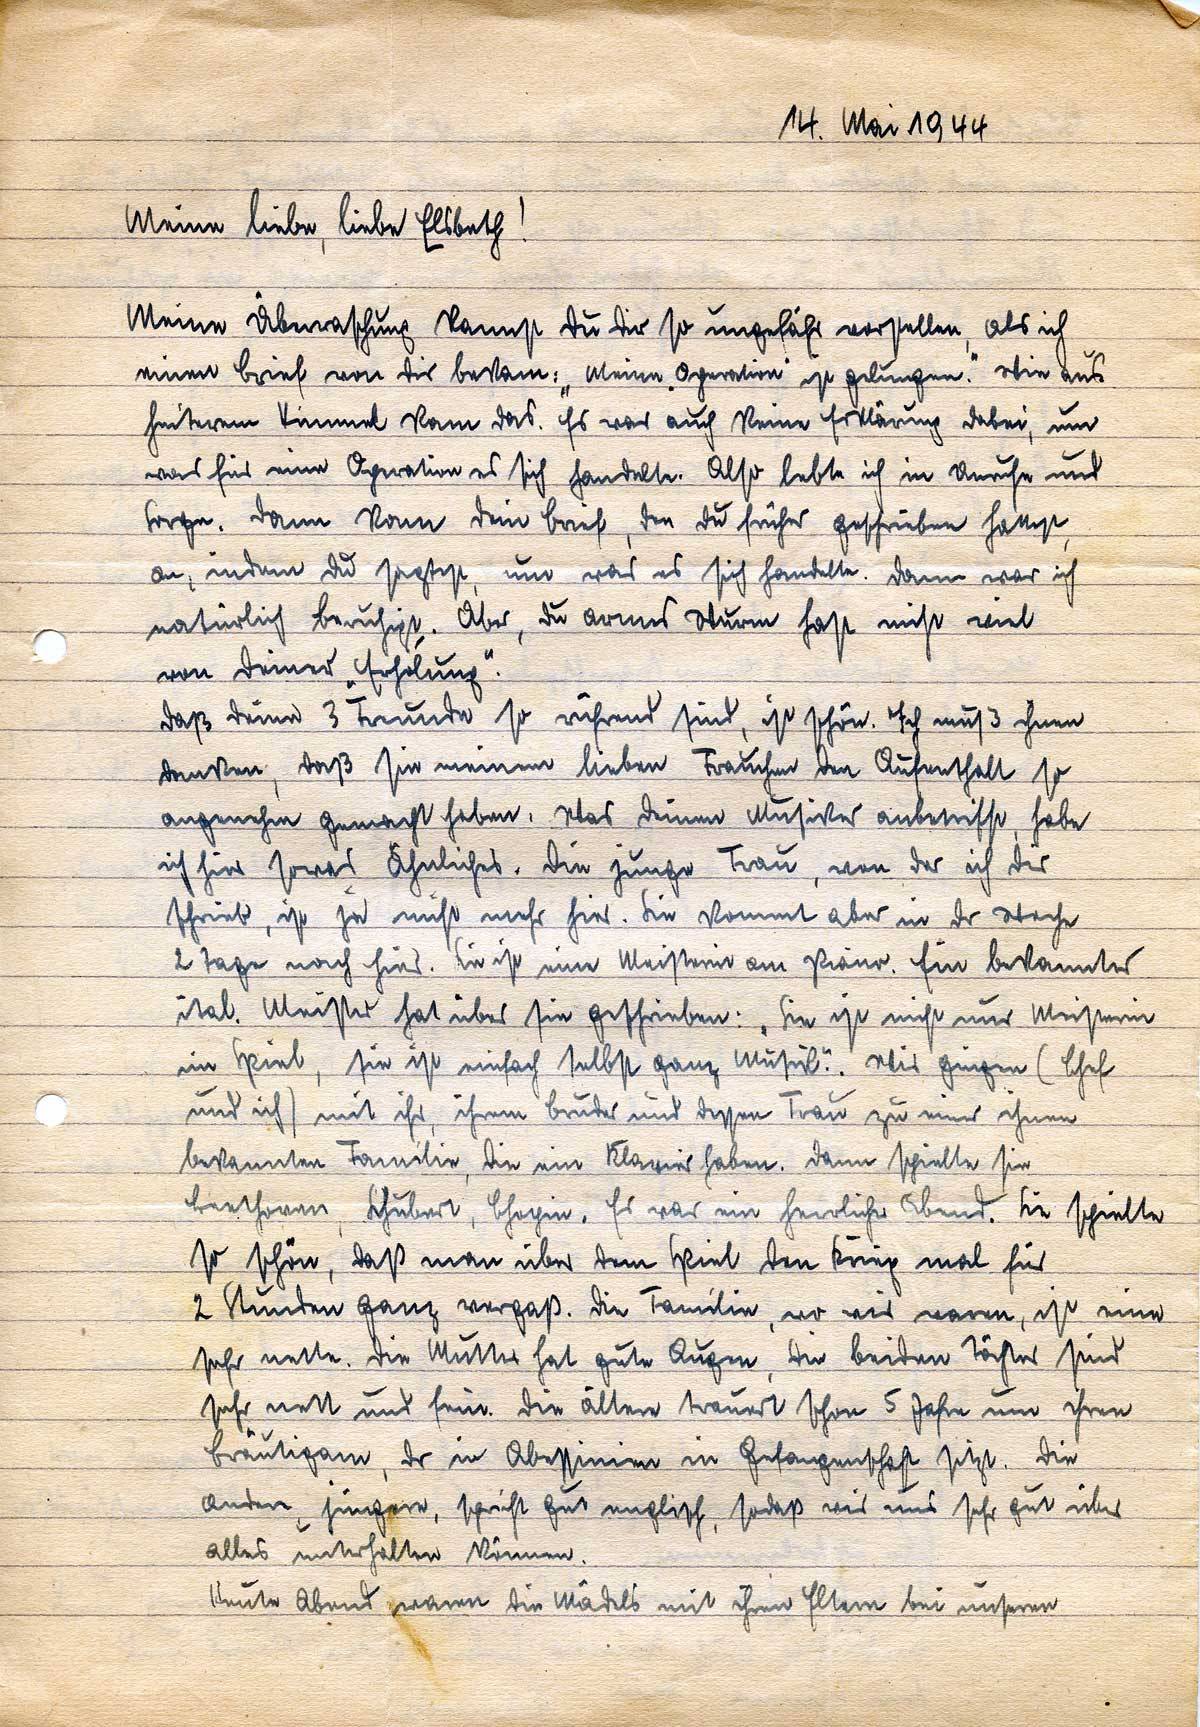 14. Mai 1944
Meine liebe, liebe Elsbeth!
Meine Überraschung kannst Du Dir so ungefähr vorstellen, als ich
einen Brief von Dir bekam: „Meine Operation ist gelungen." Wie aus
heiterem Himmel kam das. Es war auch keine Erklärung dabei, um
was für eine Operation es sich handelte. Also lebte ich in Unruhe und
Sorge. Dann kam Dein Brief, den Du früher geschrieben hattest,
an, indem Du sagtest, um was es sich handelte. Dann war ich
natürlich beruhigt. Aber, Du armes Wurm hast nicht viel
von Deiner „Erholung".
Daß Deine 3 Freunde so rührend sind, ist schön. Ich muß ihnen
danken, daß sie meinem lieben Frauchen den Aufenthalt so
angenehm gemacht haben. Was Deinen Musiker anbetrifft, habe
ich hier sowas Ähnliches. Die junge Frau, von der ich Dir
schrieb, ist ja nicht mehr hier. Sie kommt aber in dr Woche
2 Tage nach hier. Sie ist eine Meisterin am Piano. Ein bekannter
ital. Meister hat über sie geschrieben: „Sie ist nicht nur Meisterin
im Spiel, sie ist einfach selbst ganz Musik". Wir gingen (Chef
und ich) mit ihr, ihrem Bruder und dessen Frau zu einer ihnen
bekannten Familie, die ein Klavier haben. Dann spielte sie
Beethoven, Schubert, Chopin. Es war ein herrlicher Abend. Sie spielte
so schön, daß man über dem Spiel den Krieg mal für
2 Stunden ganz vergaß. Die Familie, wo wir waren, ist eine
sehr nette. Die Mutter hat gute Augen, die beiden Töchter sind
sehr nett und fein. Die ältere trauert schon 5 Jahre um ihren
Bräutigam, dr in Abessinien in Gefangenschaft sitzt. Die
andere, jüngere, spricht gut englisch, sodaß wir uns sehr gut über
alles unterhalten können.
Heute Abend waren die Mädels mit ihren Eltern bei unseren